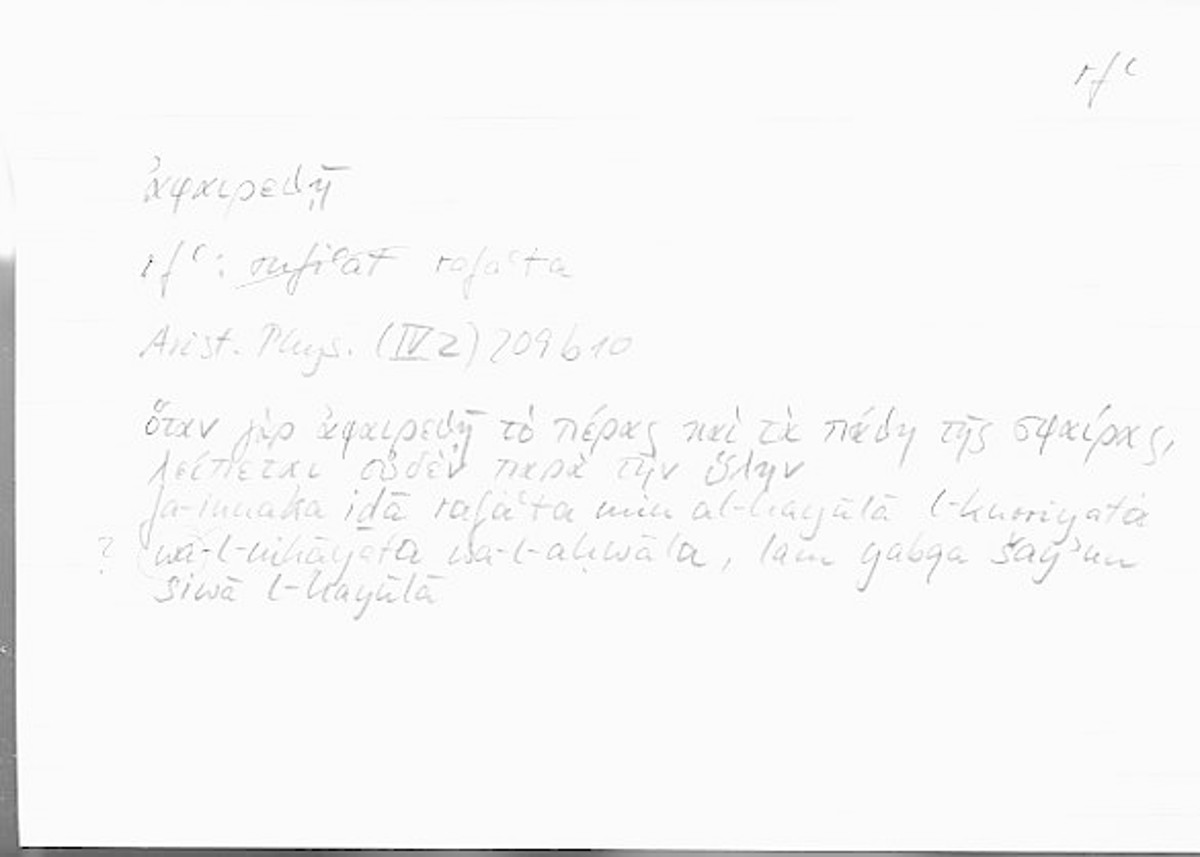 rfʿ
ἀφαιρεθῇ
rfʿ: rufiʿat rafaʿta
Arist. Phys. (IV 2) 209 b 10
ὅταν γὰρ ἀφαιρεθῇ τὸ πέρας καὶ τὰ πάθη τῆς σφαίρας,
λείπεται οὐδὲν παρὰ τὴν ὕλην
fa-innaka iḏā rafaʿta min al-hayūlā l-kurriyata
? wa-l-nihāyata wa-l-aḥwāla, lam yabqa šayʾun
siwā l-hayūlā